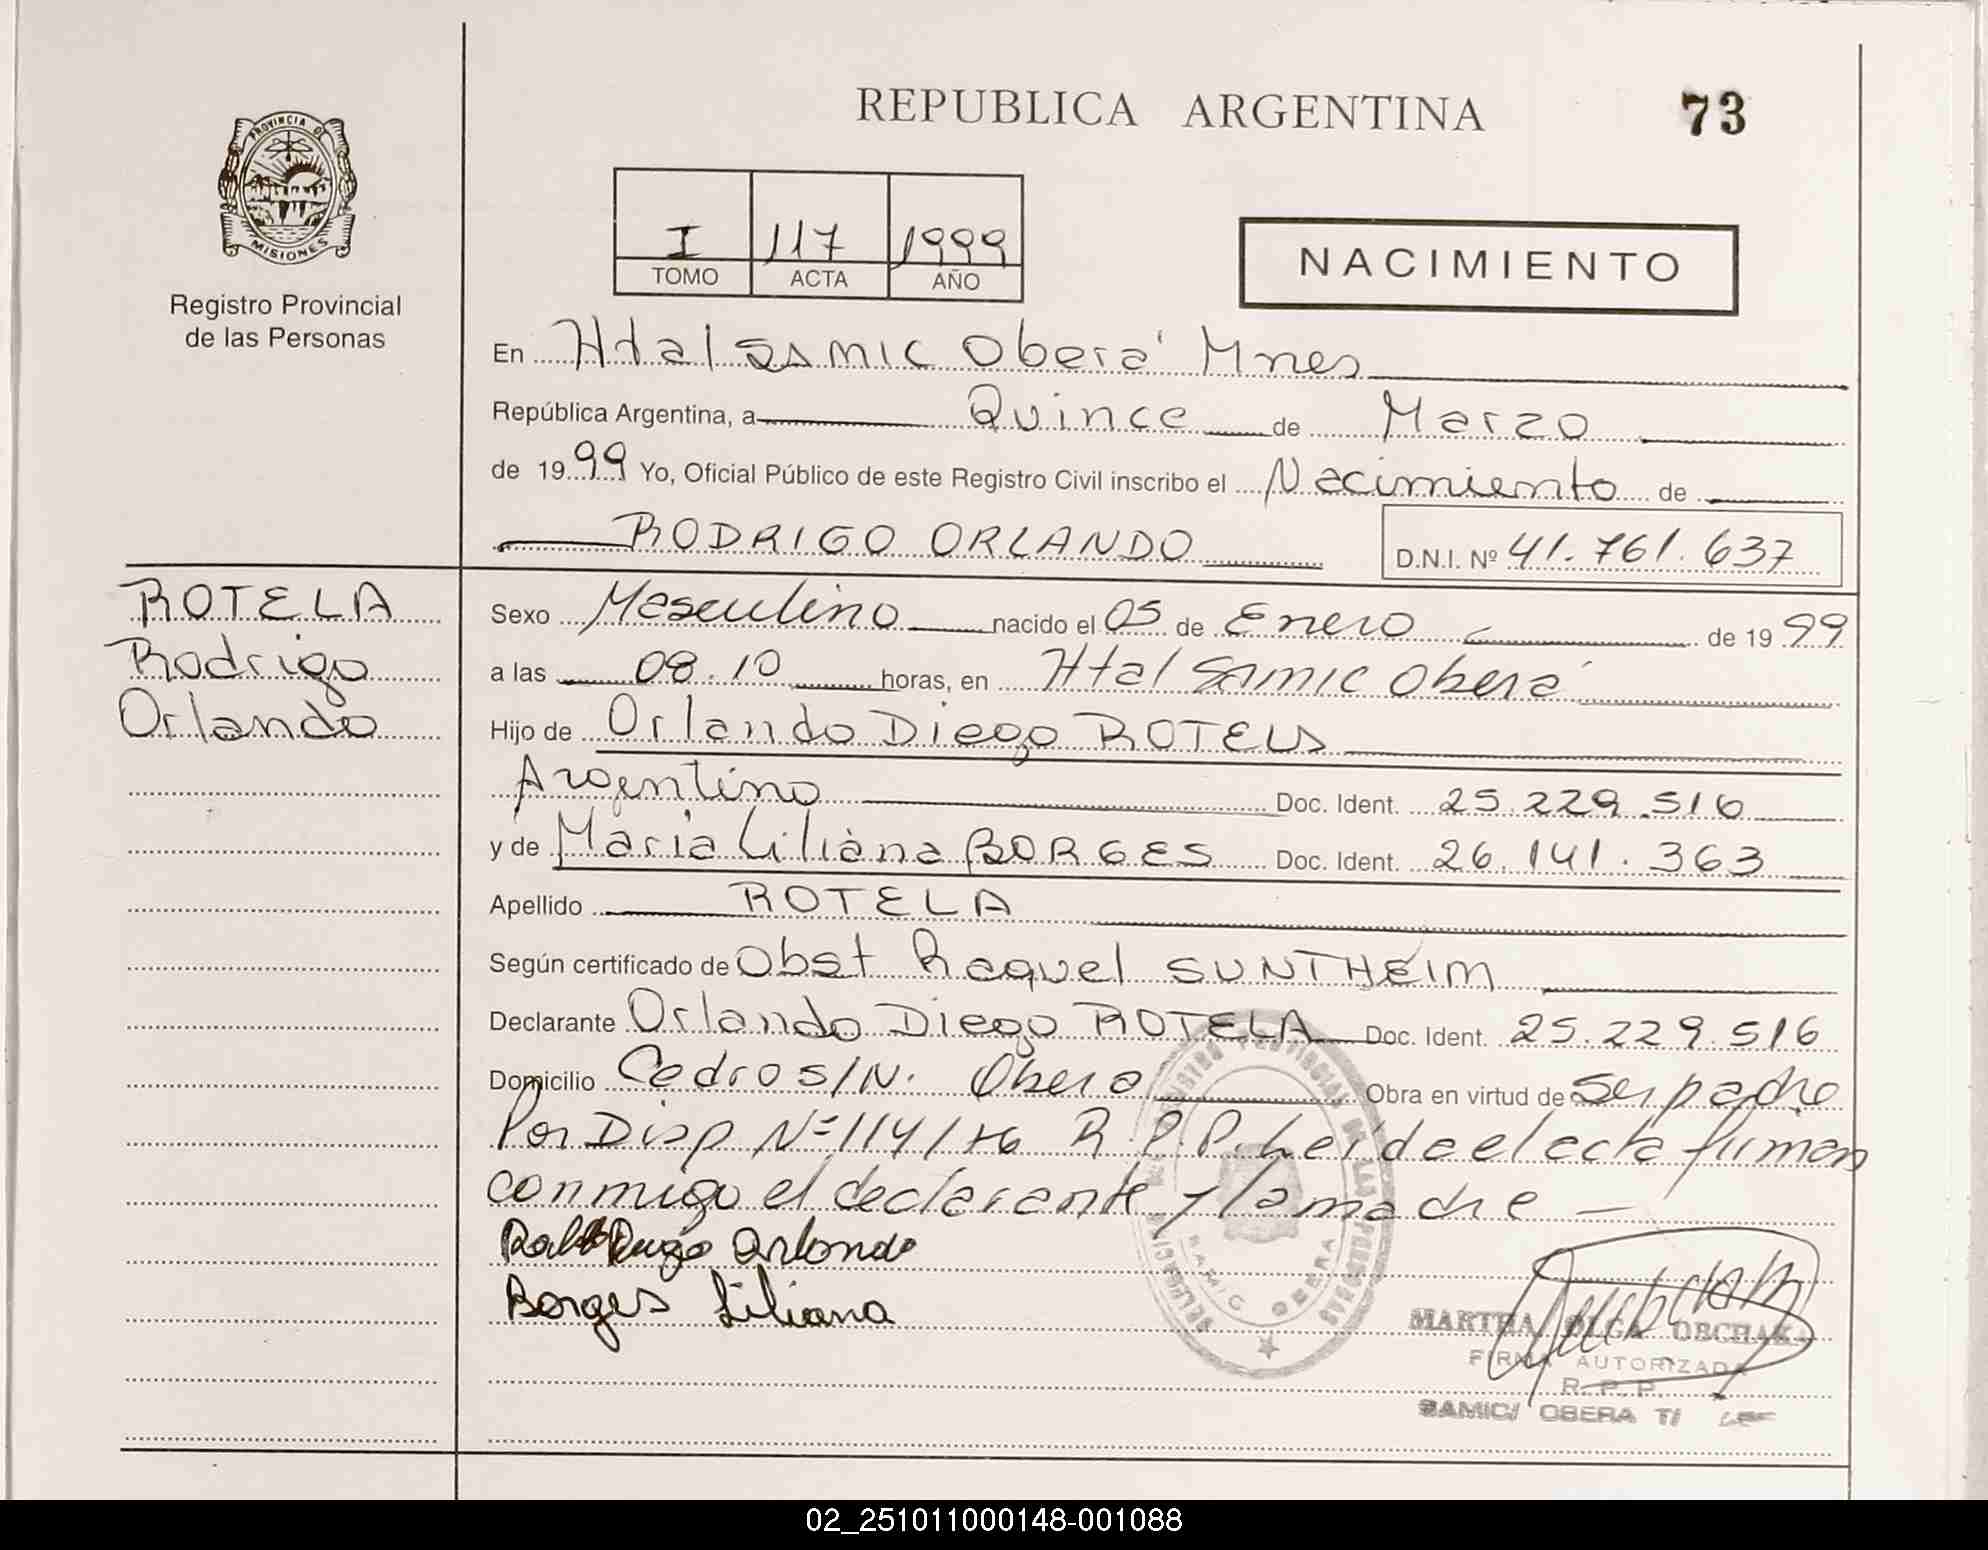 REPUBLICA ARGENTINA
73
PROVINCIA DE
MISIONES
Registro Provincial
de las Personas
I 117 1999
TOMO ACTA AÑO
NACIMIENTO
En Htal SAMIC Oberá Mnes
República Argentina, a Quince de Marzo
de 1999 Yo, Oficial Público de este Registro Civil inscribo el Nacimiento de
RODRIGO ORLANDO D.N.I. Nº 41.761.637
ROTELA
Rodrigo
Orlando
Sexo Masculino nacido el 05 de Enero de 1999
a las 08.10 horas, en Htal Samic Oberá
Hijo de Orlando Diego ROTELA
Argentino Doc. Ident. 25.229.516
y de María Liliana BORGES Doc. Ident. 26.141.363
Apellido ROTELA
Según certificado de Obst Raquel SUNTHEIM
Declarante Orlando Diego ROTELA Doc. Ident. 25.229.516
Domicilio Cedro S/N. Obera Obra en virtud de Ser padre
Por Disp Nº 114/76 R.P.P. Leída el acta firman
conmigo el declarante y la madre
Orlando
Borges Liliana
SAMIC OBERA
MARTHA OLGA OBCHAK
FIRMA AUTORIZADA
R. P. P.
SAMIC/ OBERA
02_251011000148-001088